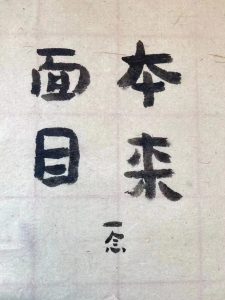 本来
面目
一念